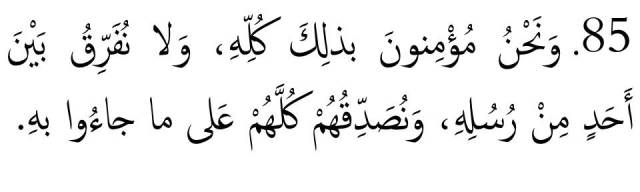 85. وَنَحْنُ مُؤْمِنونَ بذلِكَ كُلِّهِ، وَلا نُفَرِّقُ بَيْنَ
أَحَدٍ مِنْ رُسُلِهِ، وَنُصَدِّقُهُمْ كُلَّهُمْ عَلى ما جاءُوا بهِ.